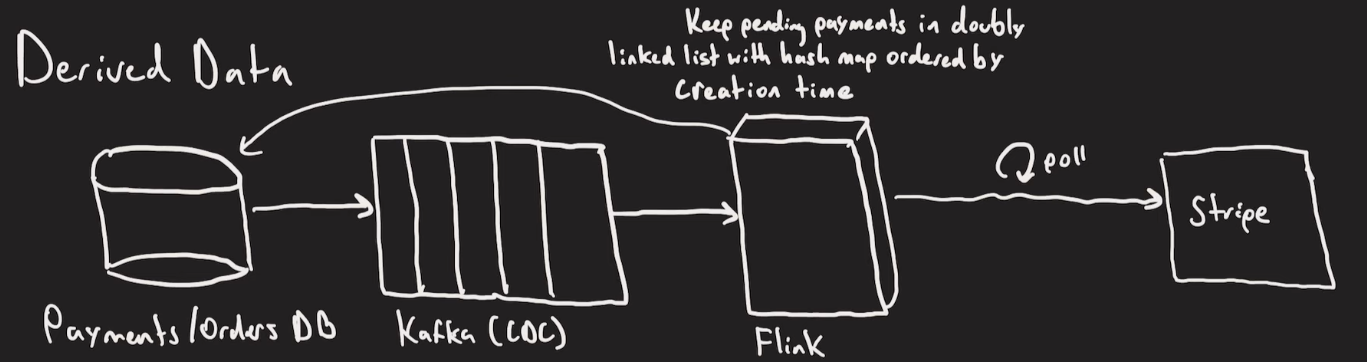 Derived Data
Keep pending payments in doubly
linked list with hash map ordered by
creation time
poll
Stripe
Payments/Orders DB
Kafka (CDC)
Flink